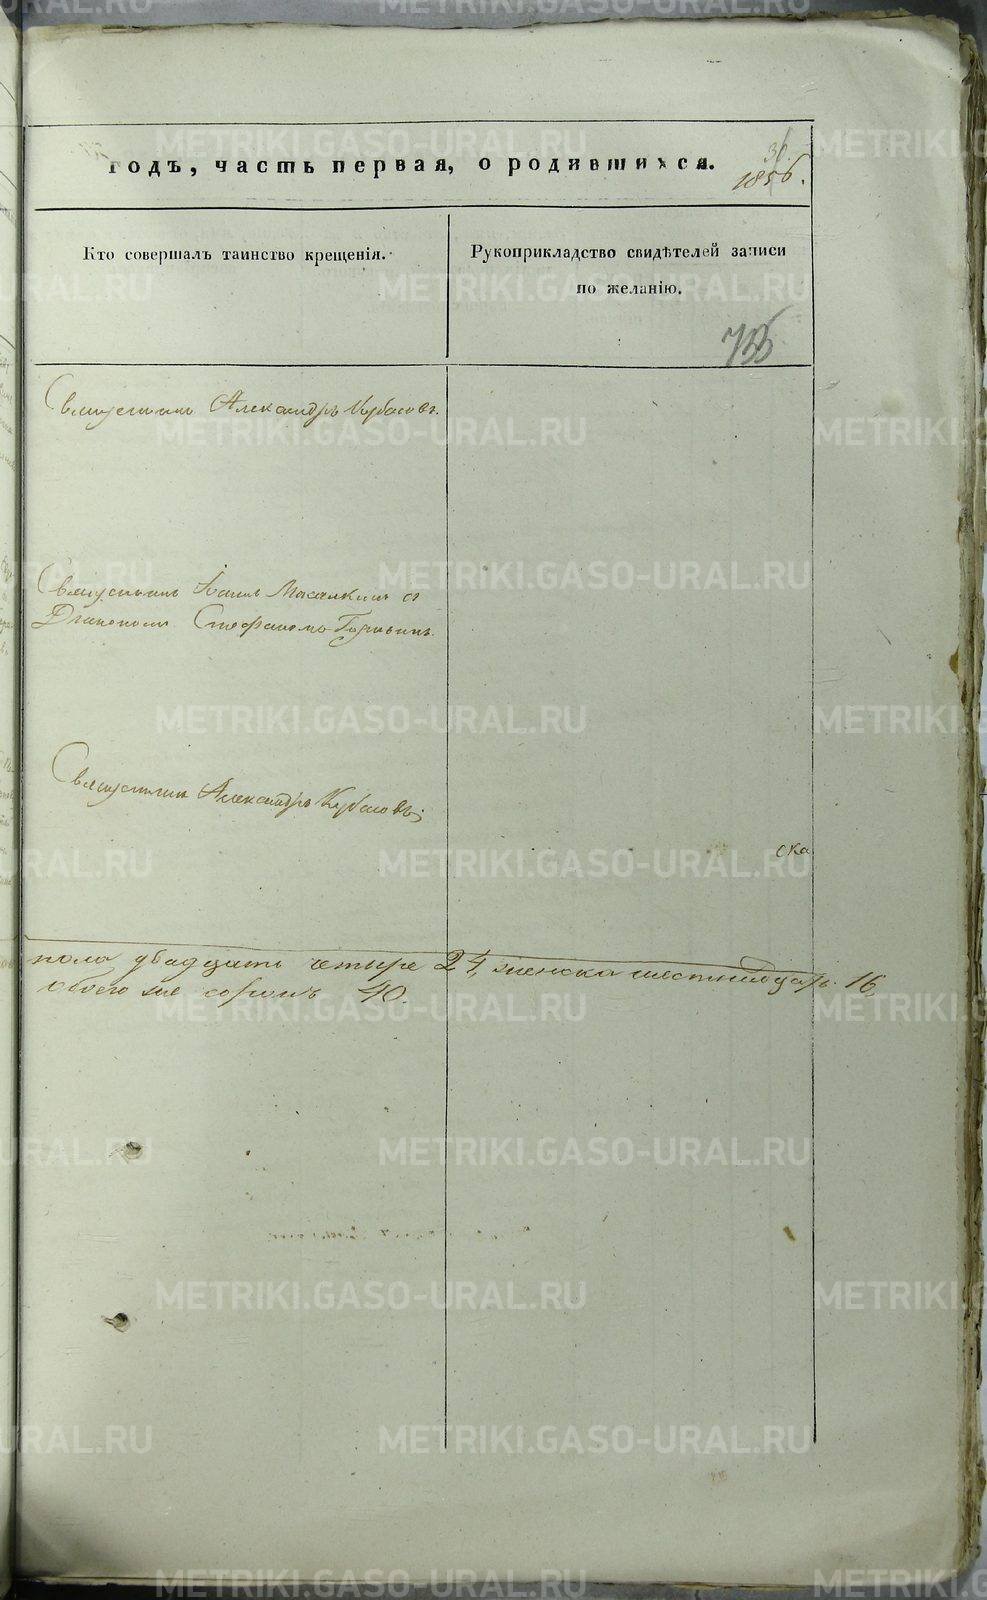 годъ, часть первая, о родившихся.
Кто совершалъ таинство крещенія.
Рукоприкладство свидѣтелей записи
по желанію.
Священникъ Александръ Курбасовъ.
Священникъ съ
Діакономъ Стефаномъ
Священникъ Александръ Курбасовъ
ска
пола двадцать четыре 24, женска шестнадцать 16
обоего же сорокъ 40.
METRIKI.GASO-URAL.RU